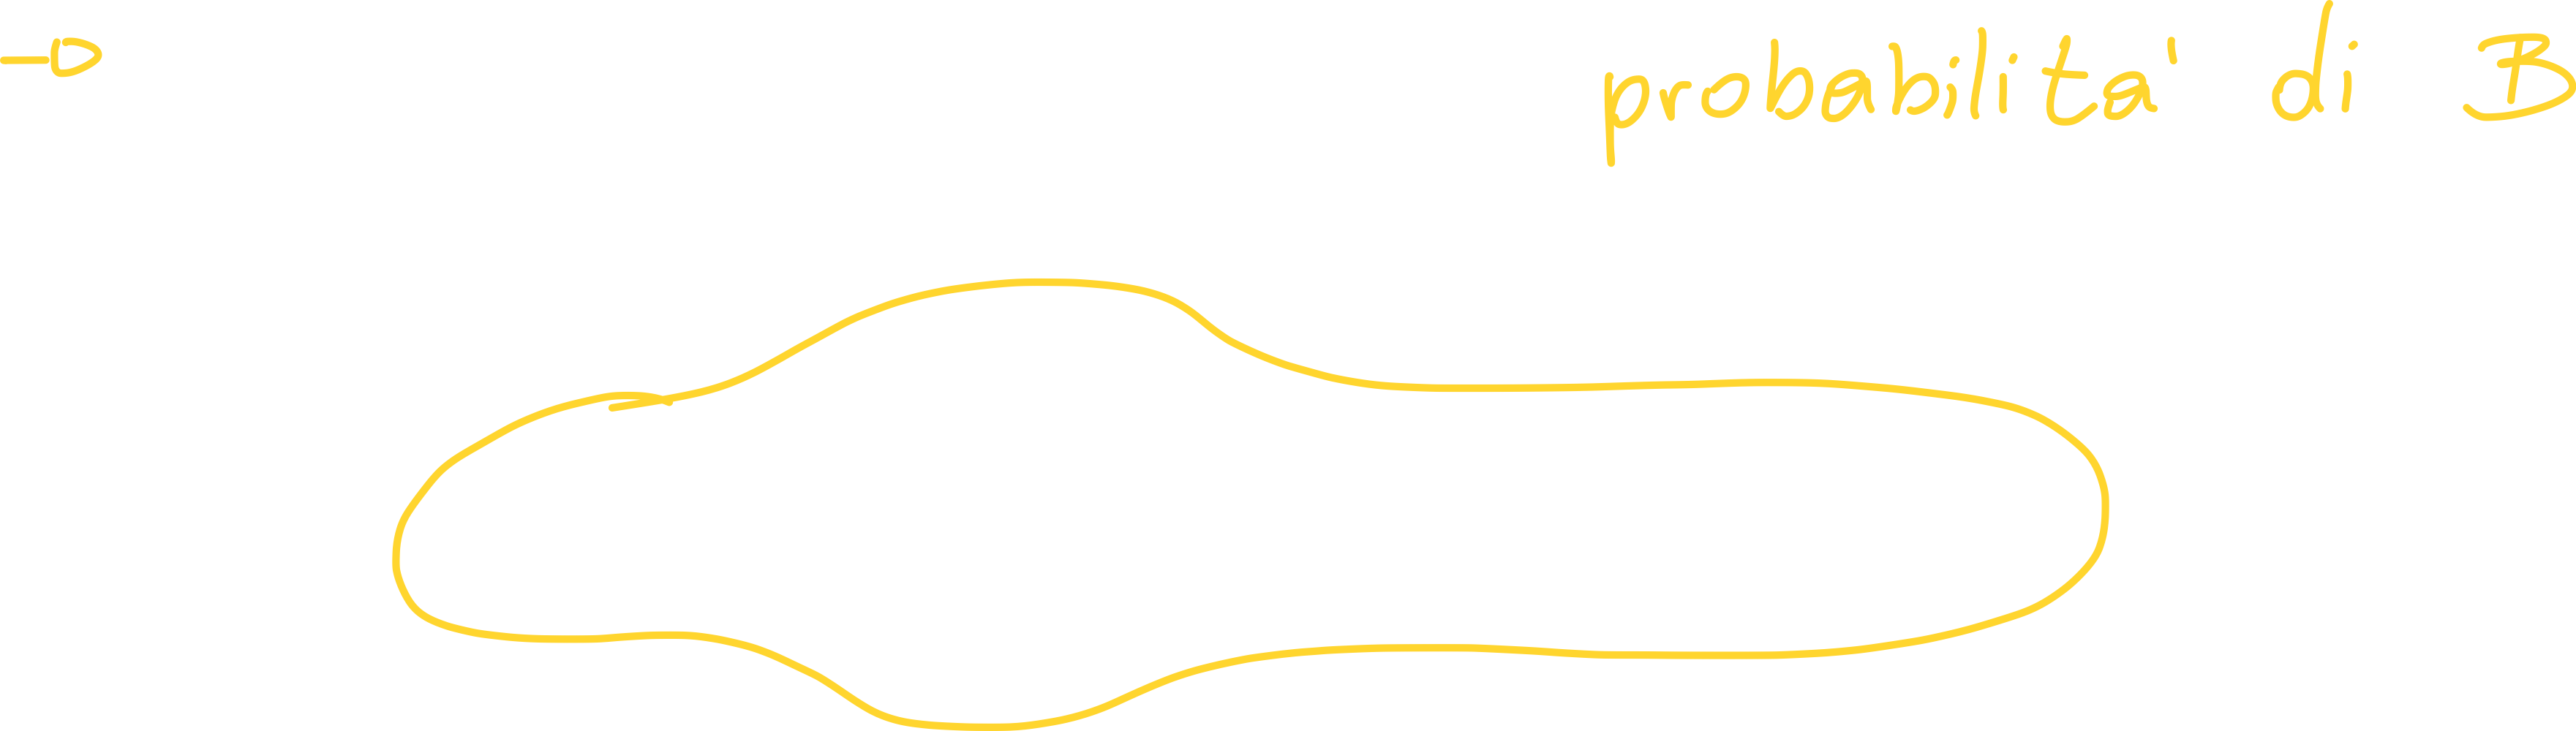 → probabilita' di B